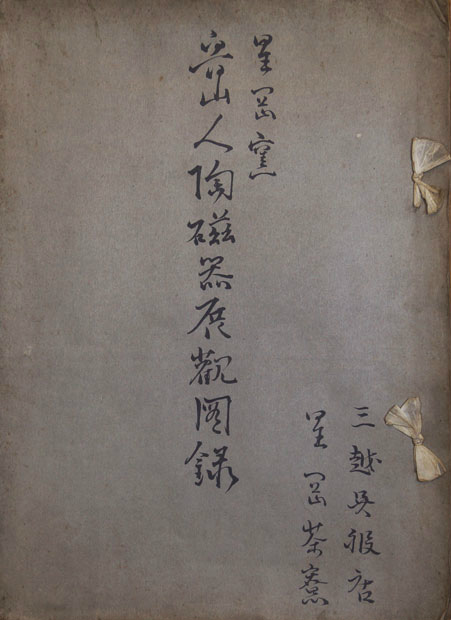 星岡窯
魯山人陶磁器展觀図錄
三越呉服店
星岡茶寮